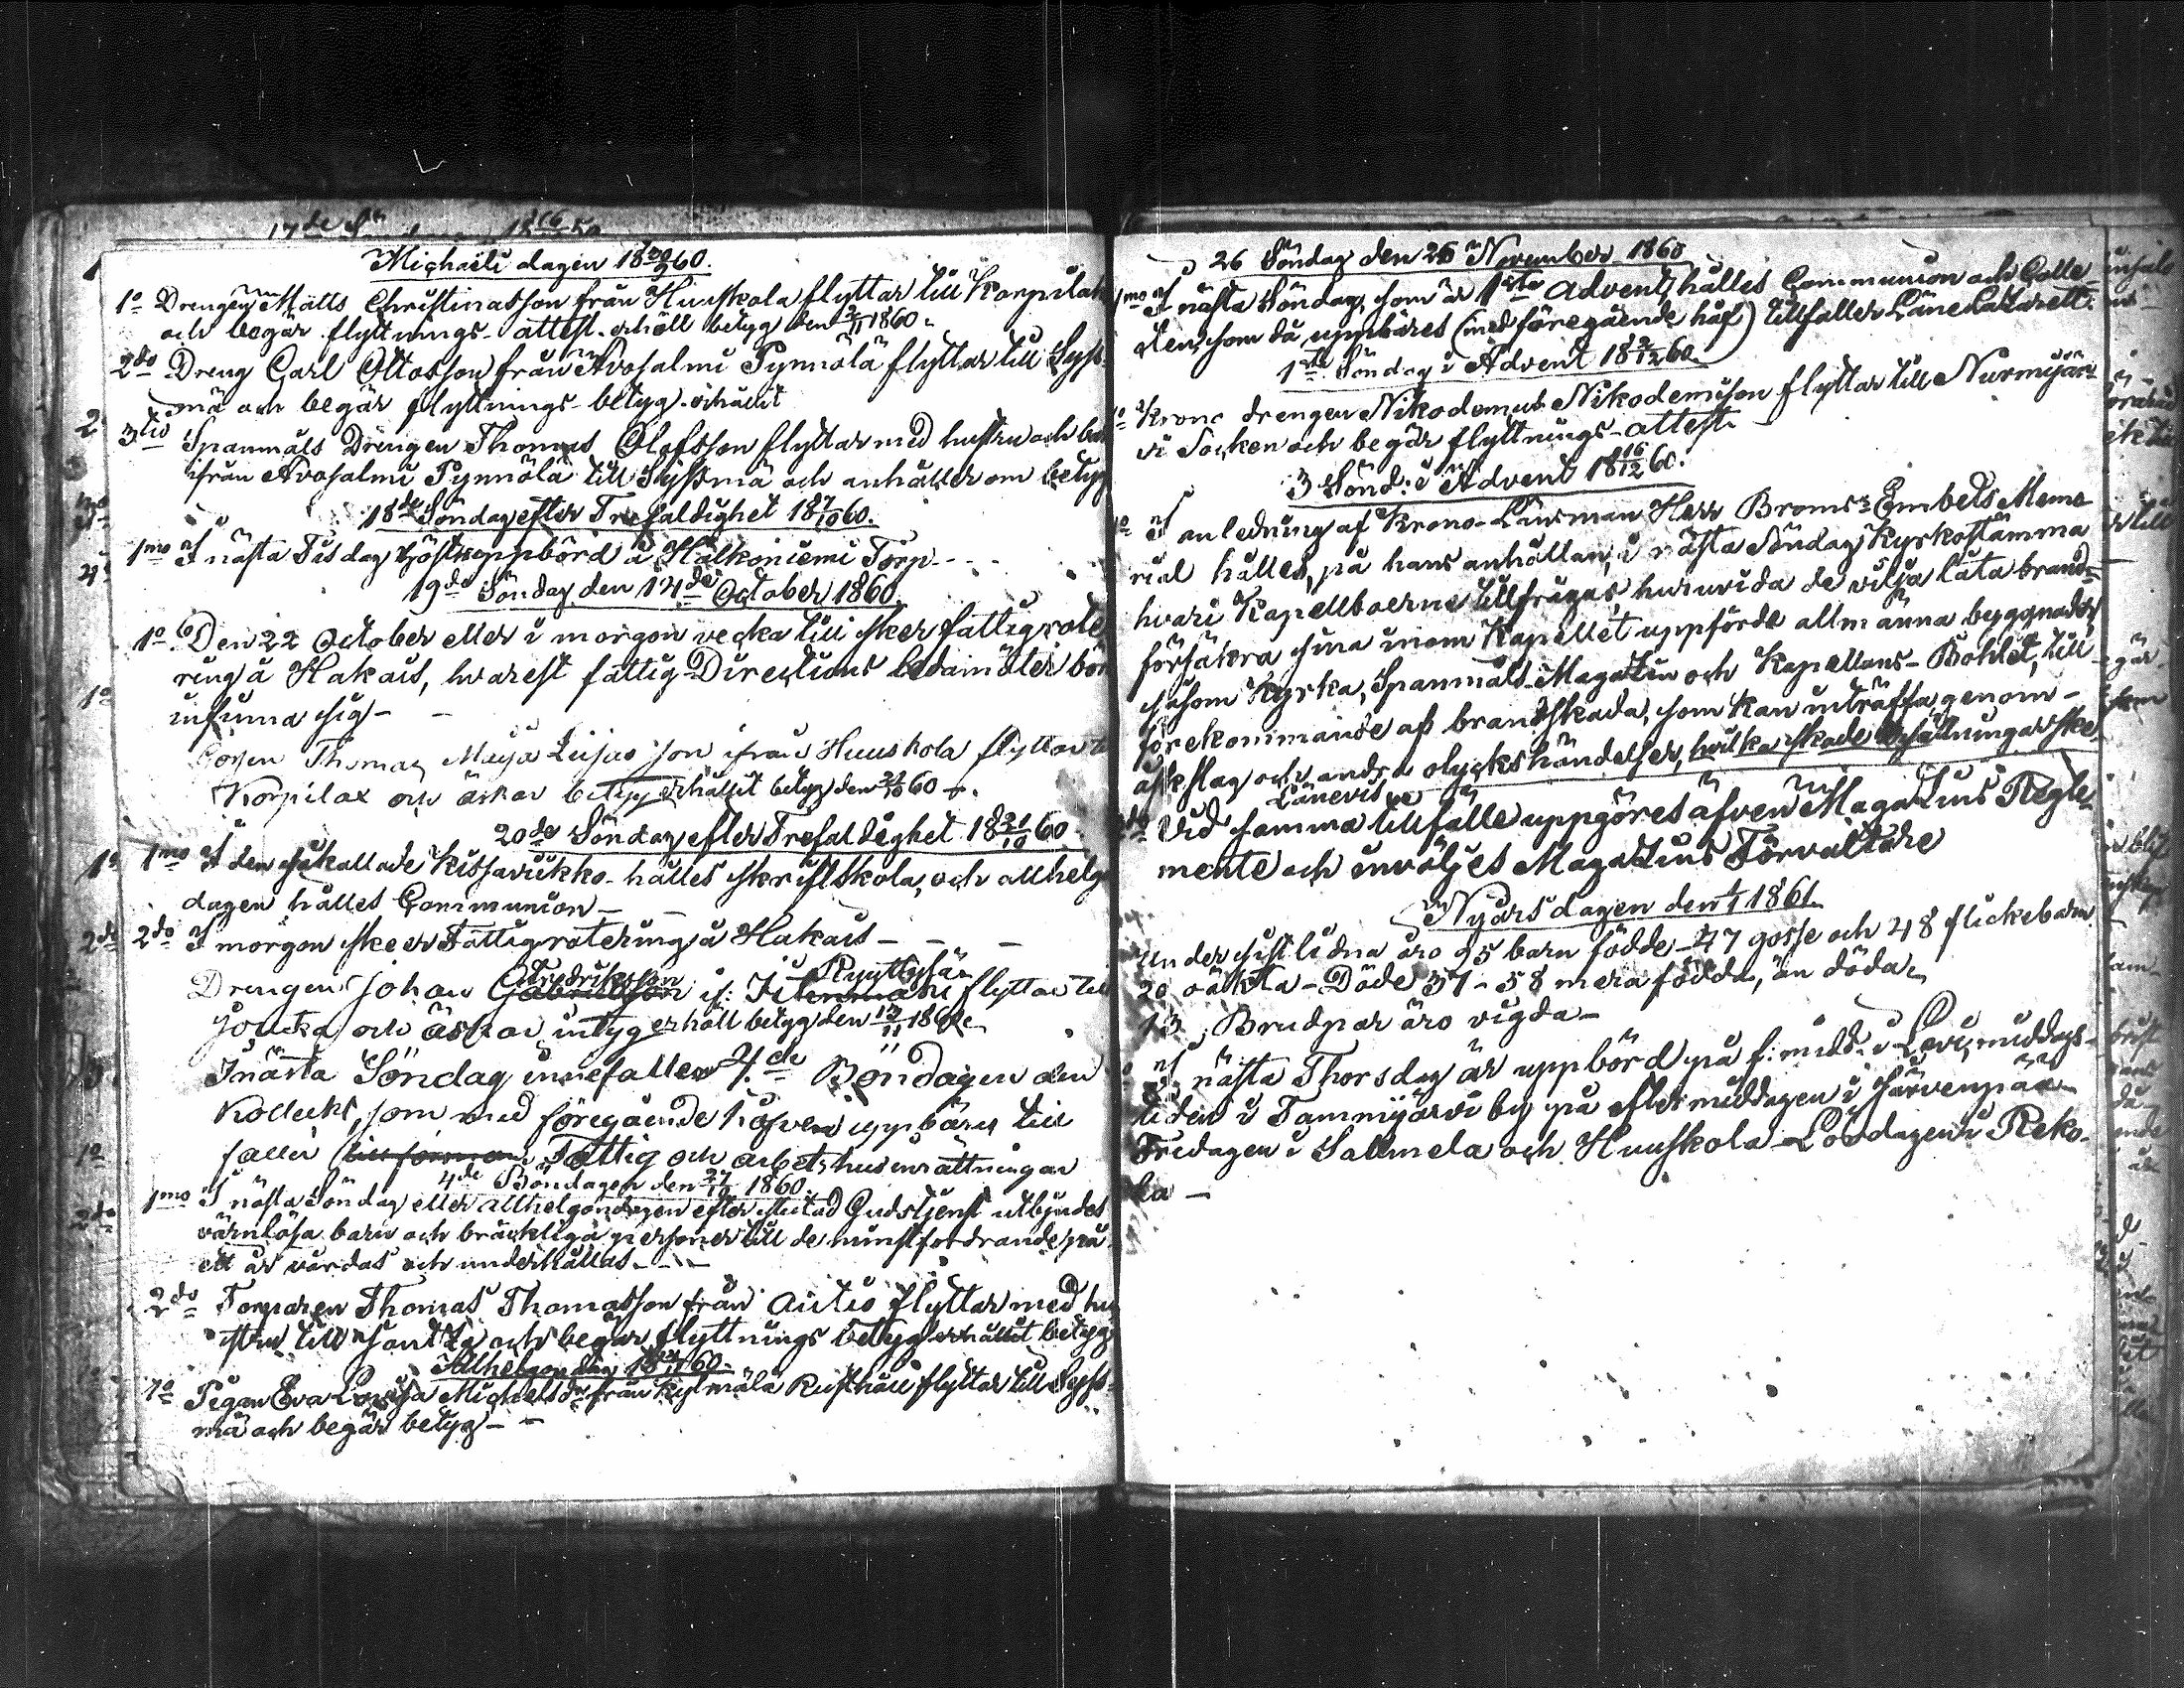 Michaëli dagen 18 30/9 60.
1o Drengen Matts Christinasson från Huuskola flyttar till Korpilax
och begär flyttnings-attest. erhöll betyg den 2/11 1860.
2do Dreng Carl Ottosson från Avosalmi Pynnölä flyttar till Syss-
mä och begär flyttnings-betyg. erhållit
3tio Spanmåls Drengen Thomas Olofsson flyttar med hustru och barn
ifrån Avosalmi Pynnölä till Syssmä och anhåller om betyg
18de Söndag efter Trefaldighet 18 7/10 60.
1mo I nästa Tisdag höstuppbörd å Halkoniemi Torp
19de Söndag den 14de October 1860.
1o Den 22 October eller i morgon vecka till sker fattigrote-
ring å Hakais, hvarest fattig Directions ledamöter böra
infinna sig
Thomas Maija Liisas son ifrån Huuskola flyttar till
Korpilax och äskar betyg erhållit betyg den 24/10 60
20de Söndag efter Trefaldighet 18 21/10 60.
1mo I den såkallade Kissaviikko hålles skriftskola, och allhelgo
dagen hålles Communion
2do I morgon skeer Fattigrotering å Hakais
Fredriksson Ryyttyjä
Drengen Johan Gabrielsson if: flyttar till
Joutsa och äskar intyg erhöll betyg den
I nästa Söndag innefaller 4de Böndagen den
Kollekt, som med föregående håfven uppbäres till
faller till förmon Fattig och arbetshusinrättningar
4de Böndagen den 1860
1mo I nästa Söndag eller allhelgondagen efter slutad Gudstjenst utbjudes
värnlösa barn och bräckliga personer till de minstfordrande på
ett år vårdas och underhållas
2do Torparen Thomas Thomasson från Autio flyttar med hu-
stru till Joutsa och begär flyttnings betyg erhållit betyg
Allhelgon dag 18 60.
1o Pigan Eva Lovisa Michelsdr från Kylmälä Rusthåll flyttar till Syss-
mä och begär betyg
26 Söndag den 25 November 1860
1mo I nästa Söndag, som är 1sta Advent, hålles Communion och Colle
ten, som då uppbäres (med föregående håf) tillfaller Länelazarett.
1sta Söndag i Advent 18 2/12 60.
1o Krono drengen Nikodemus Nikodemison flyttar till Nurmijär-
vi Socken och begär flyttnings-attest
3 Sönd: i Advent 18 16/12 60.
1o I anledning af Krono-Länsman Herr Broms's Embets Memo
rial hålles, på hans anhållan, i nästa Söndag Kyrkostämma
hvari Kapellboerne tillfrågas huruvida de vilja låta brand-
försäkra sina inom Kapellet uppförde allmänna byggnader
såsom Kyrka, Spanmåls-Magazin och Kapellans-Bohlet, till
förekommande af brandskada, som kan inträffa genom
åskslag och andra olyckshändelser, hvilka skade ersättningar ske
Länevis
2do Vid samma tillfälle uppgöres äfven Magazins Regle
mente och inväljes Magazins Förvaltare
Nyårsdagen den 1/1 1861.
Under sistlidna äro 95 barn födde - 47 gosse och 48 flickebarn
20 oäkta - Döde 37 - 58 mera födda, än döda
13 Brudpar äro vigda
I nästa Thorsdag är uppbörd på f: midd: i Levi, middags-
tiden i Tammijärvi by på eftermiddagen i Järvenpää
Fredagen i Sallmela och Huuskola Lördagen i Reko-
la